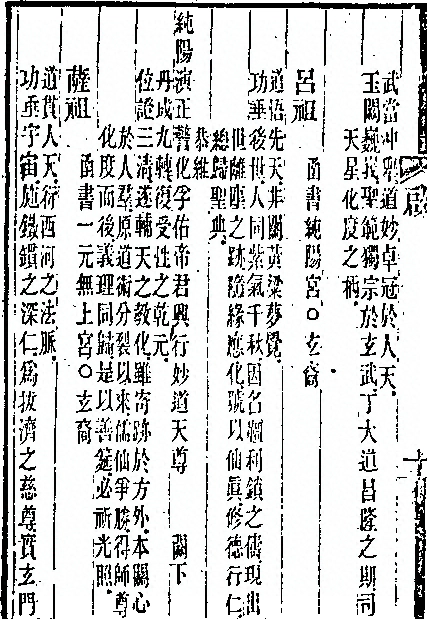 武當冲舉道妙卓冠於人天
玉闕巍峩聖範獨宗於玄武丁大道昌隆之期司
天星化度之柄
呂祖　函書純陽宮○玄裔
道悟先天非關黃粱夢覺
功垂後世人同紫氣千秋因名韁利鎖之儔現出
世離塵之跡隨緣應化號以仙眞修德行仁
總歸聖典
恭維
純陽演正警化孚佑帝君興行妙道天尊　闕下
丹成九轉復受性之乾元
位證三清遂輔天之教化雖寄跡於方外本關心
於人羣原道術分裂以來儒仙爭勝得師尊
化度而後義理同歸是以善筵必祈光照
薩祖　函書一元無上宮○玄裔
道貫人天衍西河之法脈
功垂宇宙施鐵鑽之深仁爲拔濟之慈尊實玄門